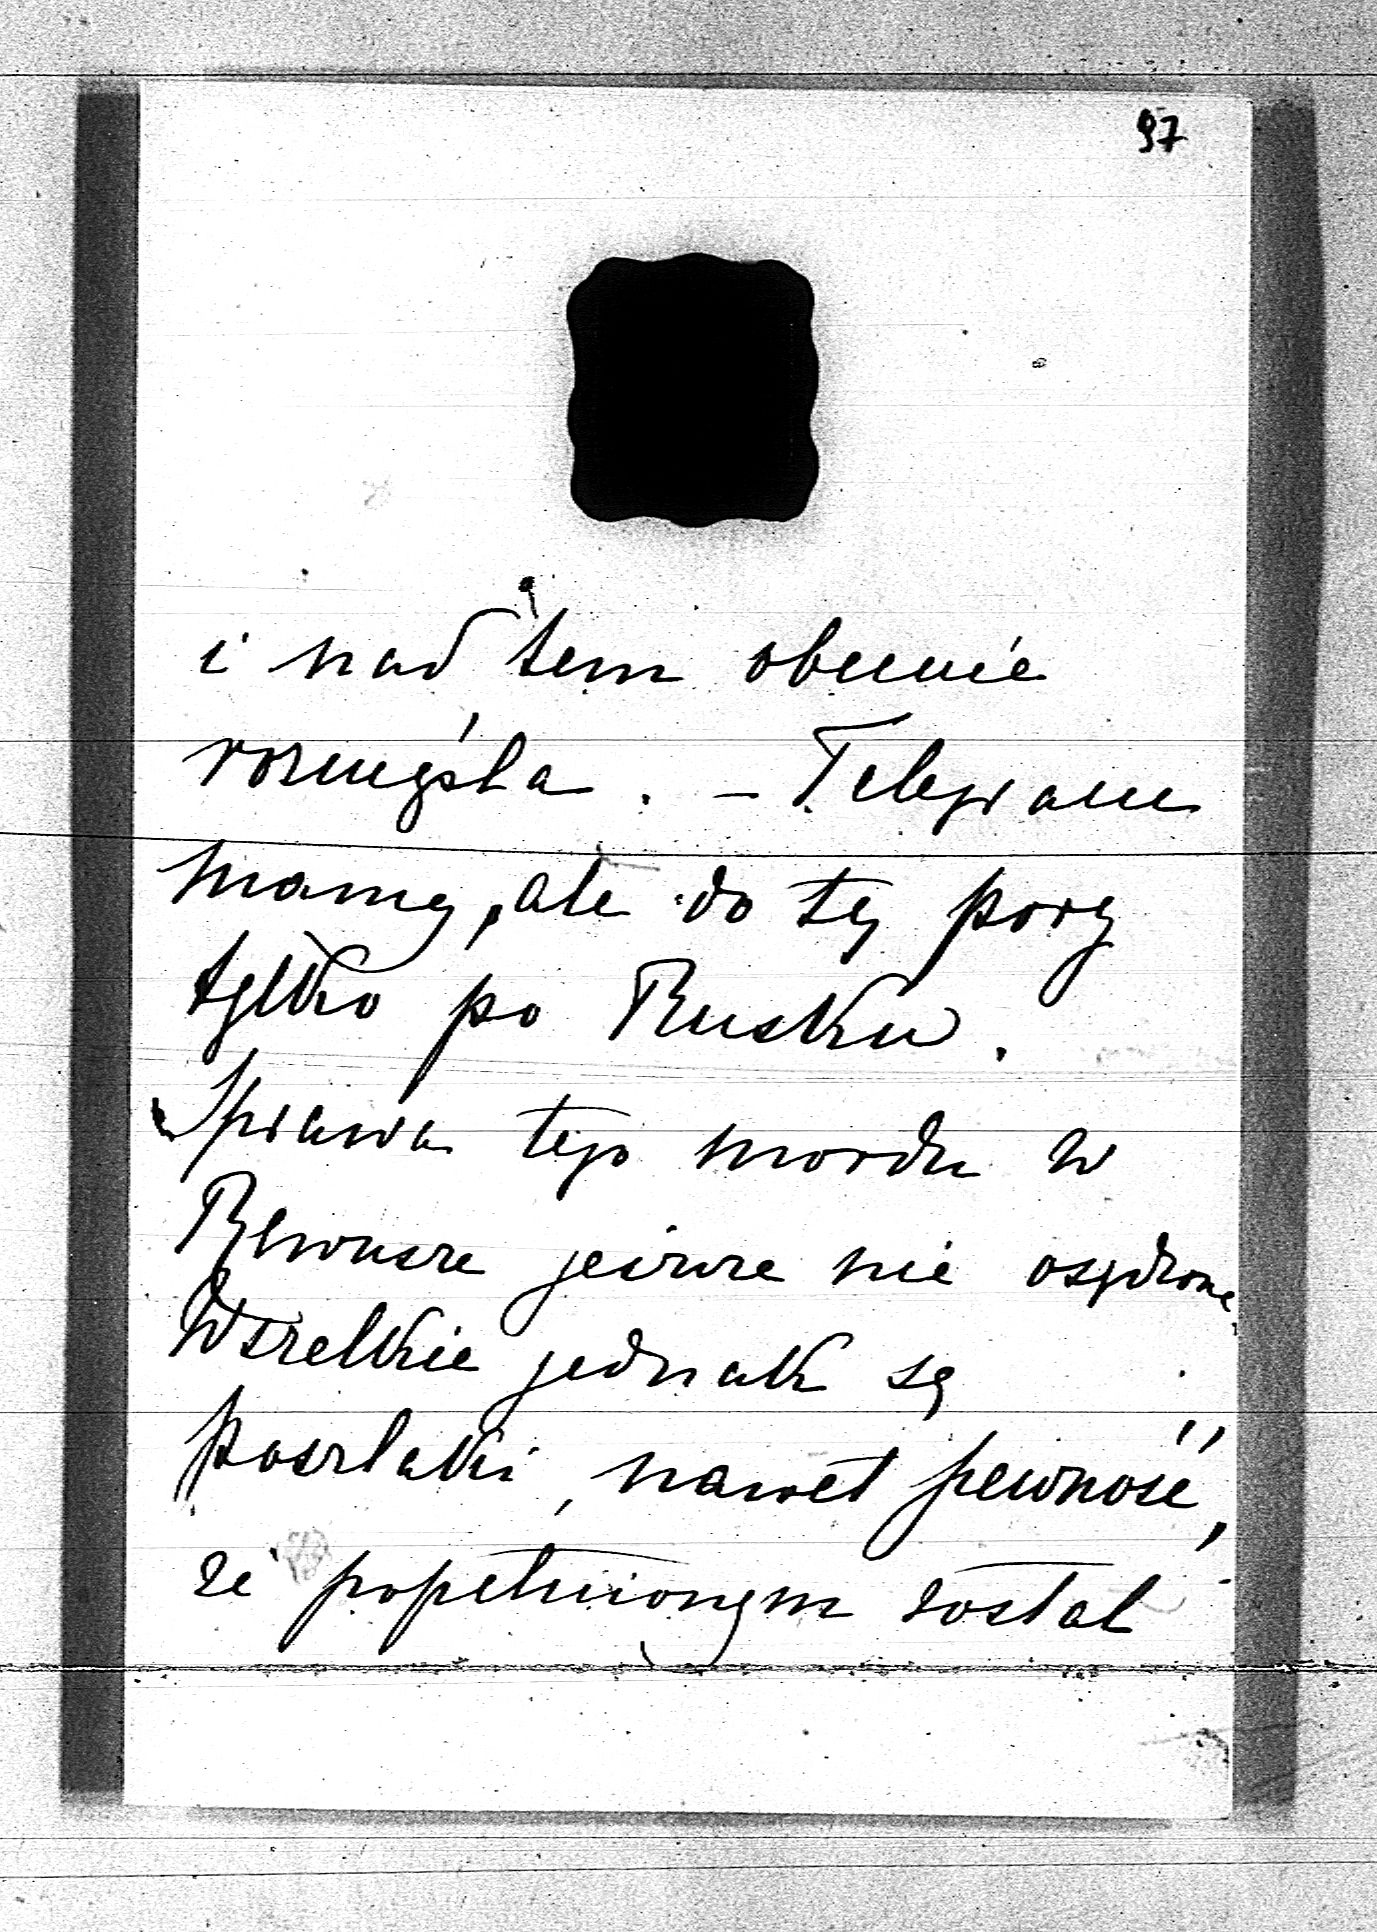 97
i nad tem obecnie
rozmyśla. – Telegram
mamy, ale do tej pory
tylko po Rusku.
Sprawa tego mordu w
jeszcze nie osądzona
Wszelkie jednak są
poszlaki, nawet pewność,
że popełnionym został